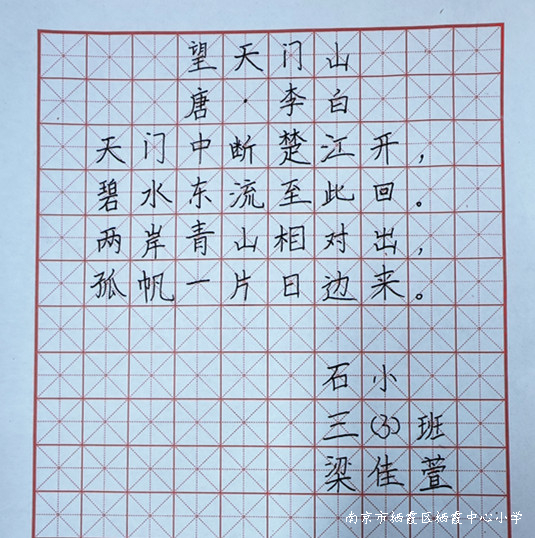 望天门山
唐·李白
天门中断楚江开，
碧水东流至此回。
两岸青山相对出，
孤帆一片日边来。
石小
三(3)班
梁佳萱
南京市栖霞区栖霞中心小学